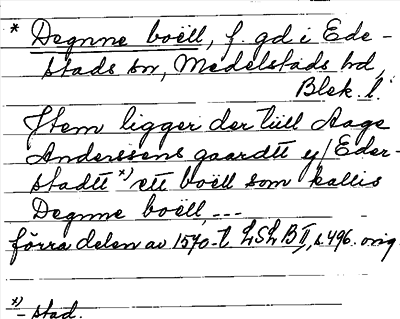 * Degnne boëll, f. gd i Ede-
stads sn, Medelstads hd,
Blek. l.
Item ligger der tiill Aage
Anderssens gaardtt y/Eder-
stadtt *) ett boëll som kallis
Degnne boëll, ---
förra delen av 1570-t. LSLB II, s. 496. orig.
*) -stad.